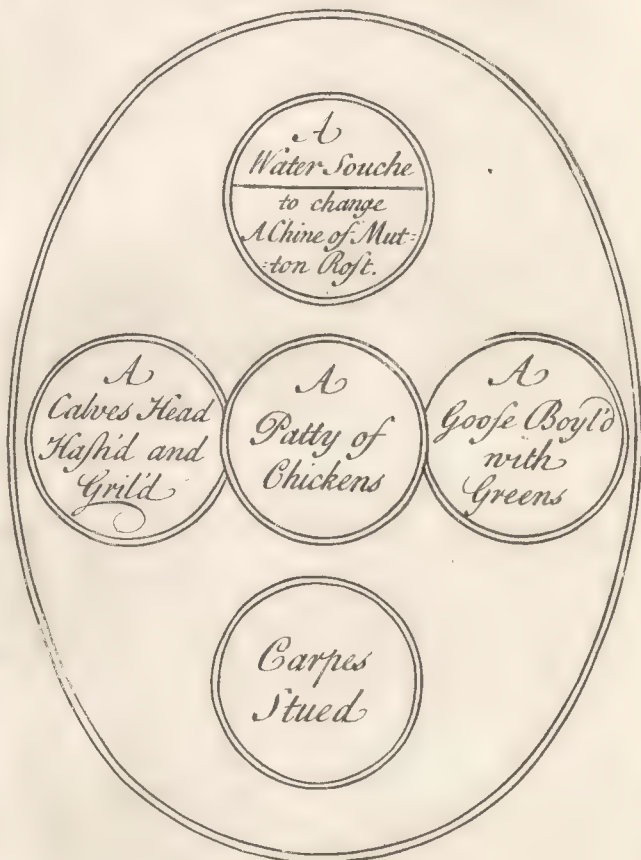 A
Water Souche
to change
A Chine of Mut=
=ton Roſt.
A
Calves Head
Haſh'd and
Gril'd
A
Patty of
Chickens
A
Gooſe Boyl'd
with
Greens
Carpes
Stued